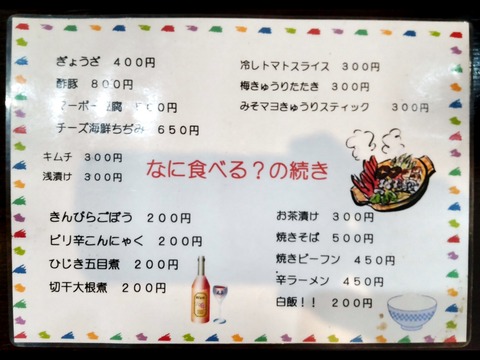 ぎょうざ 400円
酢豚 800円
マーボー豆腐 500円
チーズ海鮮ちぢみ 650円
キムチ 300円
浅漬け 300円
冷しトマトスライス 300円
梅きゅうりたたき 300円
みそマヨきゅうりスティック 300円
なに食べる？の続き
きんぴらごぼう 200円
ピリ辛こんにゃく 200円
ひじき五目煮 200円
切干大根煮 200円
お茶漬け 300円
焼きそば 500円
焼きビーフン 450円
辛ラーメン 450円
白飯！！ 200円